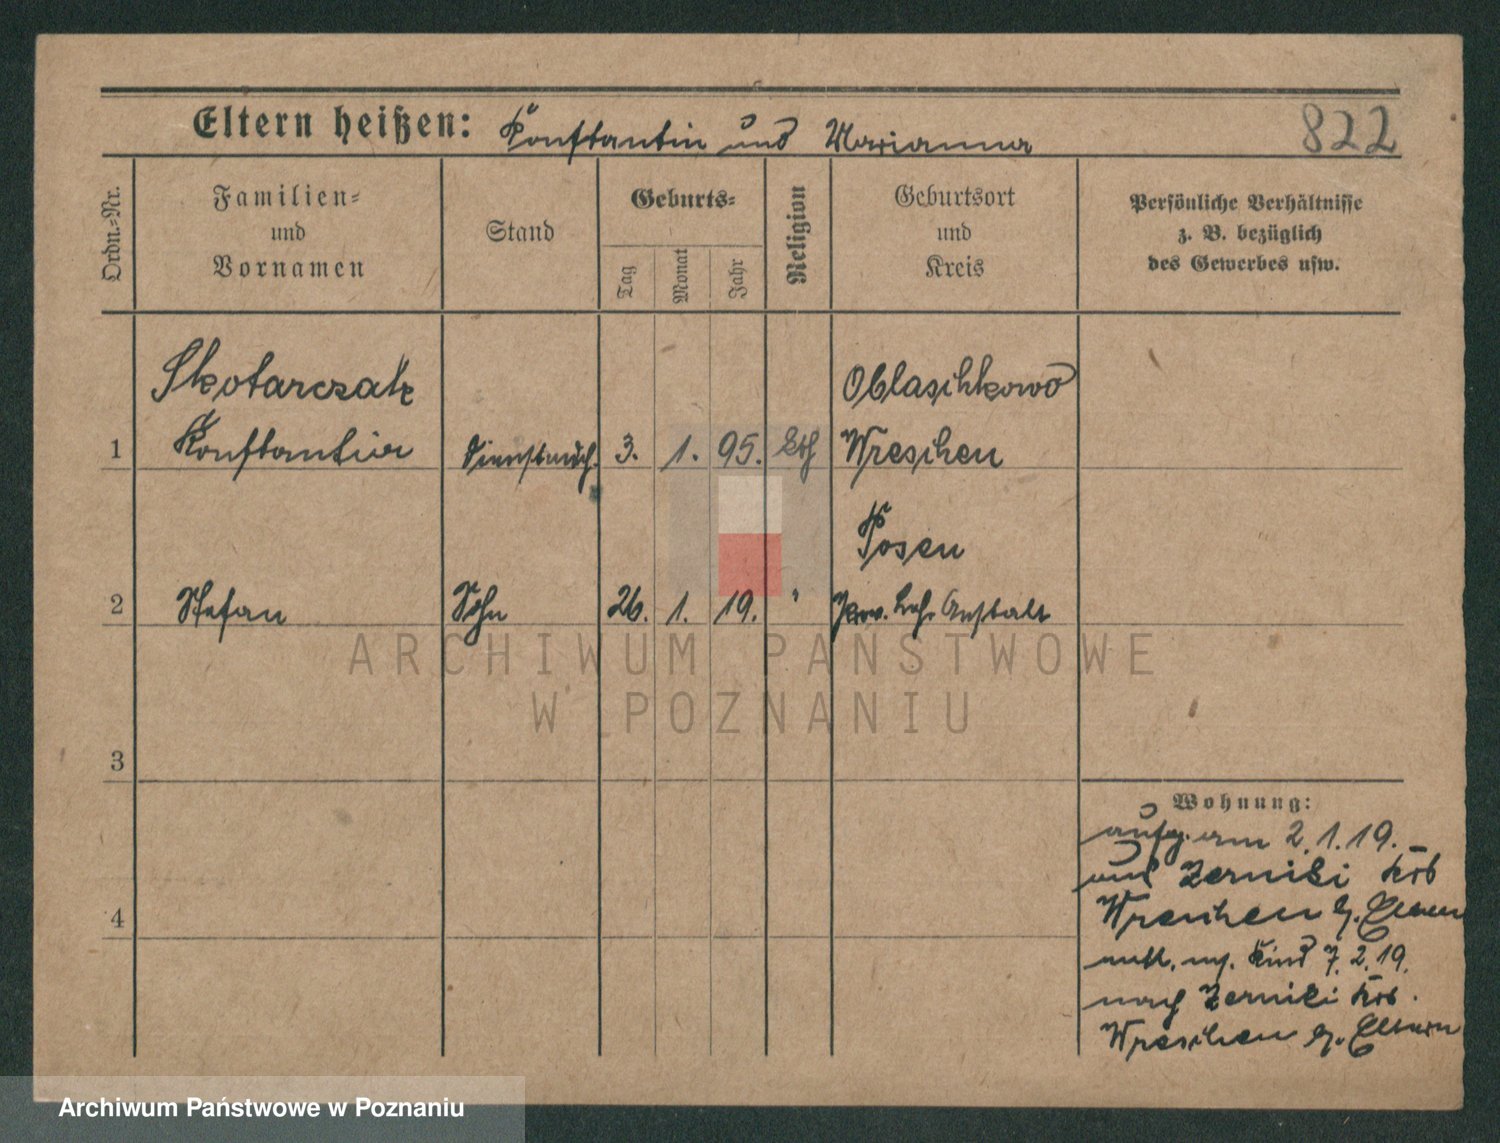 Eltern heißen: Konstantin und Marianna
822
Ordn.-Nr.
Familien-
und
Vornamen
Stand
Geburts-
Tag
Monat
Jahr
Religion
Geburtsort
und
Kreis
Persönliche Verhältnisse
z. B. bezüglich
des Gewerbes usw.
Skotarczak
Oblaschkowo
1 3. 1. 95. kth Wreschen
Posen
2 Stefan Sohn 26. 1. 19. " Anstalt
3
Wohnung:
aufg. am 2.1.19.
aus Zerniki Krs
4
Wreschen z. Eltern
mit Kind 7.2.19.
nach Zerniki Krs.
Wreschen z. Eltern
ARCHIWUM PAŃSTWOWE
W POZNANIU
Archiwum Państwowe w Poznaniu